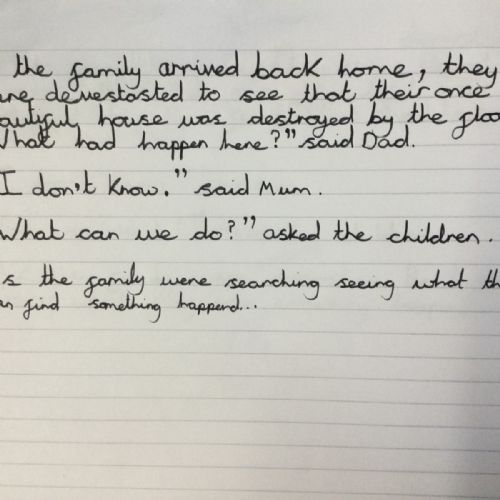 the family arrived back home, they
are devestasted to see that their once
autiful house was destroyed by the floo
What had happen here?" said Dad.
I don't know." said Mum.
What can we do?" asked the children.
s the family were searching seeing what th
an find something happend...